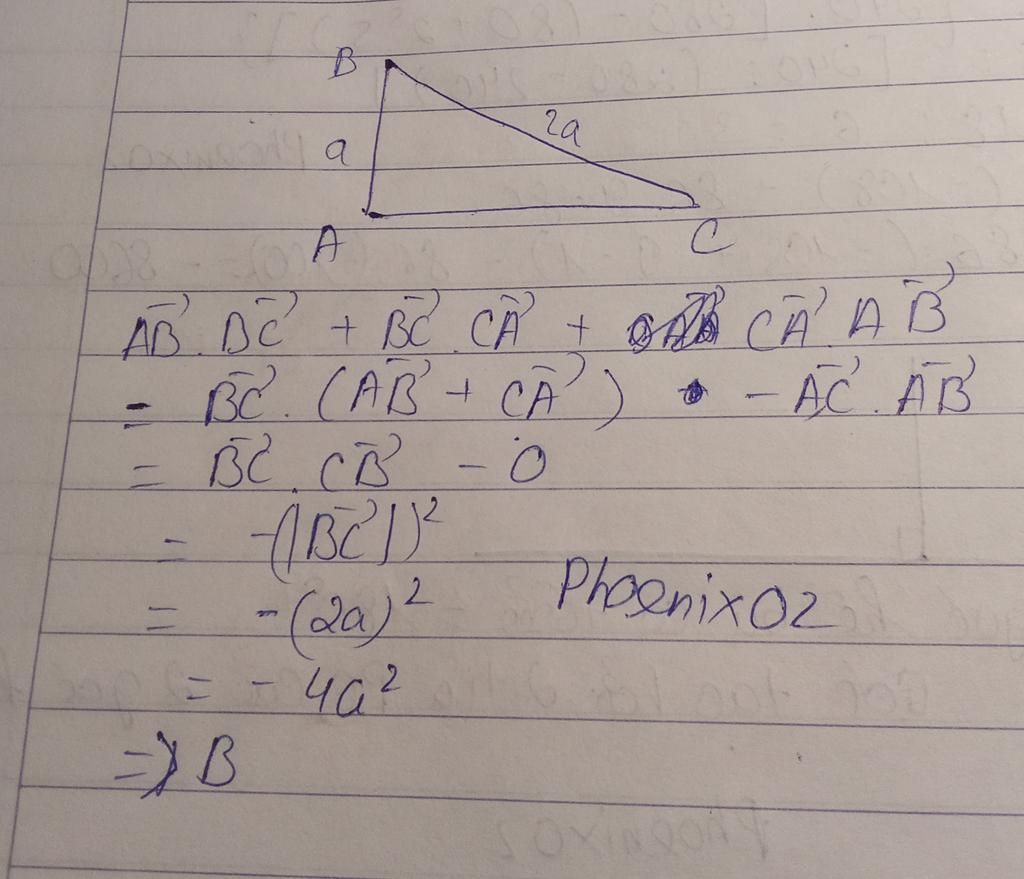 B
2a
a
A
C
$\vec{AB} . \vec{BC} + \vec{BC} . \vec{CA} + \vec{CA} . \vec{AB}$
$= \vec{BC} . (\vec{AB} + \vec{CA}) - \vec{AC} . \vec{AB}$
$= \vec{BC} . \vec{CB} - 0$
$= -(|\vec{BC}|)^2$
$= -(2a)^2$
PhoenixO2
$= -4a^2$
=> B